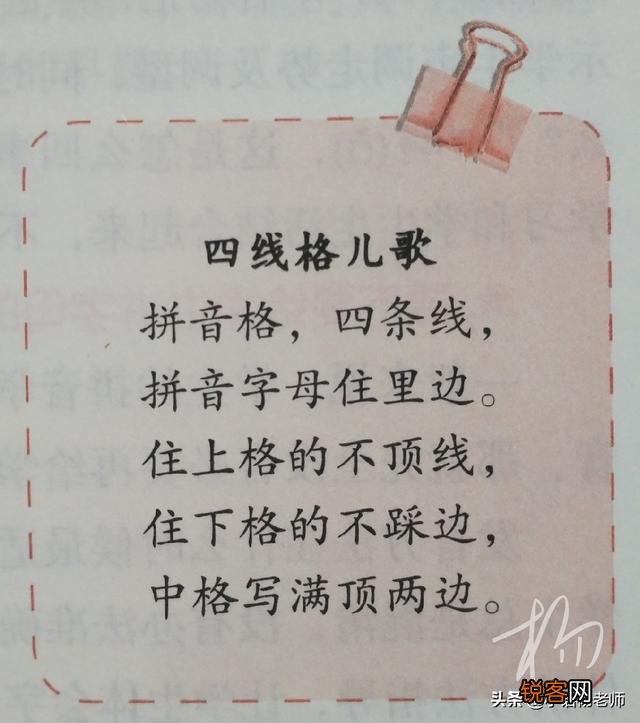 四线格儿歌
拼音格，四条线，
拼音字母住里边。
住上格的不顶线，
住下格的不踩边，
中格写满顶两边。
杨
头条
锐客网
老师